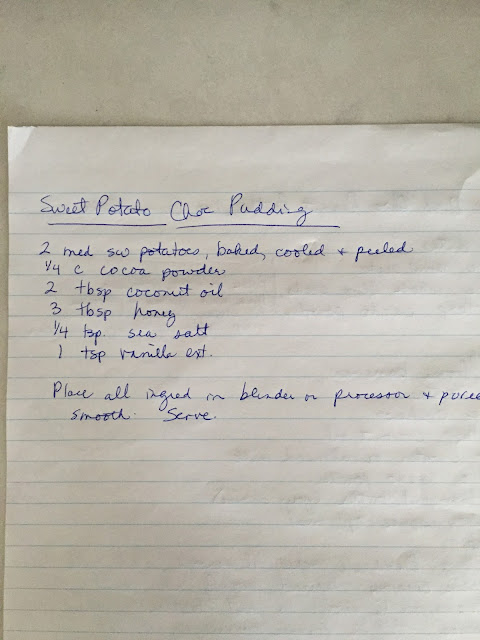 Sweet Potato Choc Pudding
2 med sw potatoes, baked, cooled + peeled
1/4 c cocoa powder
2 tbsp coconut oil
3 tbsp honey
1/4 tsp. sea salt
1 tsp vanilla ext.
Place all ingred in blender or processor + puree
smooth. Serve.